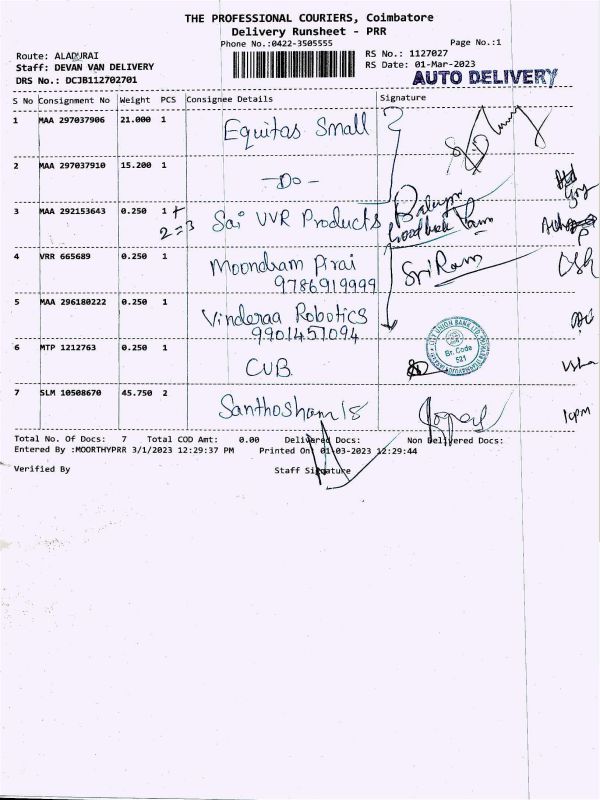 THE PROFESSIONAL COURIERS, Coimbatore
Delivery Runsheet - PRR
Phone No.:0422-3505555 Page No.:1
Route: ALADURAI RS No.: 1127027
Staff: DEVAN VAN DELIVERY RS Date: 01-Mar-2023
DRS No.: DCJB112702701 AUTO DELIVERY
S No Consignment No Weight PCS Consignee Details Signature
1 MAA 297037906 21.000 1 Equitas Small
2 MAA 297037910 15.200 1 -Do-
3 MAA 292153643 0.250 1 + Sai VVR Products
2=3
4 VRR 665689 0.250 1 Moondram Pirai SriRam
9786919999
5 MAA 296180222 0.250 1 Vinderaa Robotics
9901457094
6 MTP 1212763 0.250 1 CUB Br. Code
521
7 SLM 10508670 45.750 2 Santhosham 18
Total No. Of Docs: 7 Total COD Amt: 0.00 Delivered Docs: Non Delivered Docs:
Entered By :MOORTHYPRR 3/1/2023 12:29:37 PM Printed On 01-03-2023 12:29:44
Verified By Staff Signature